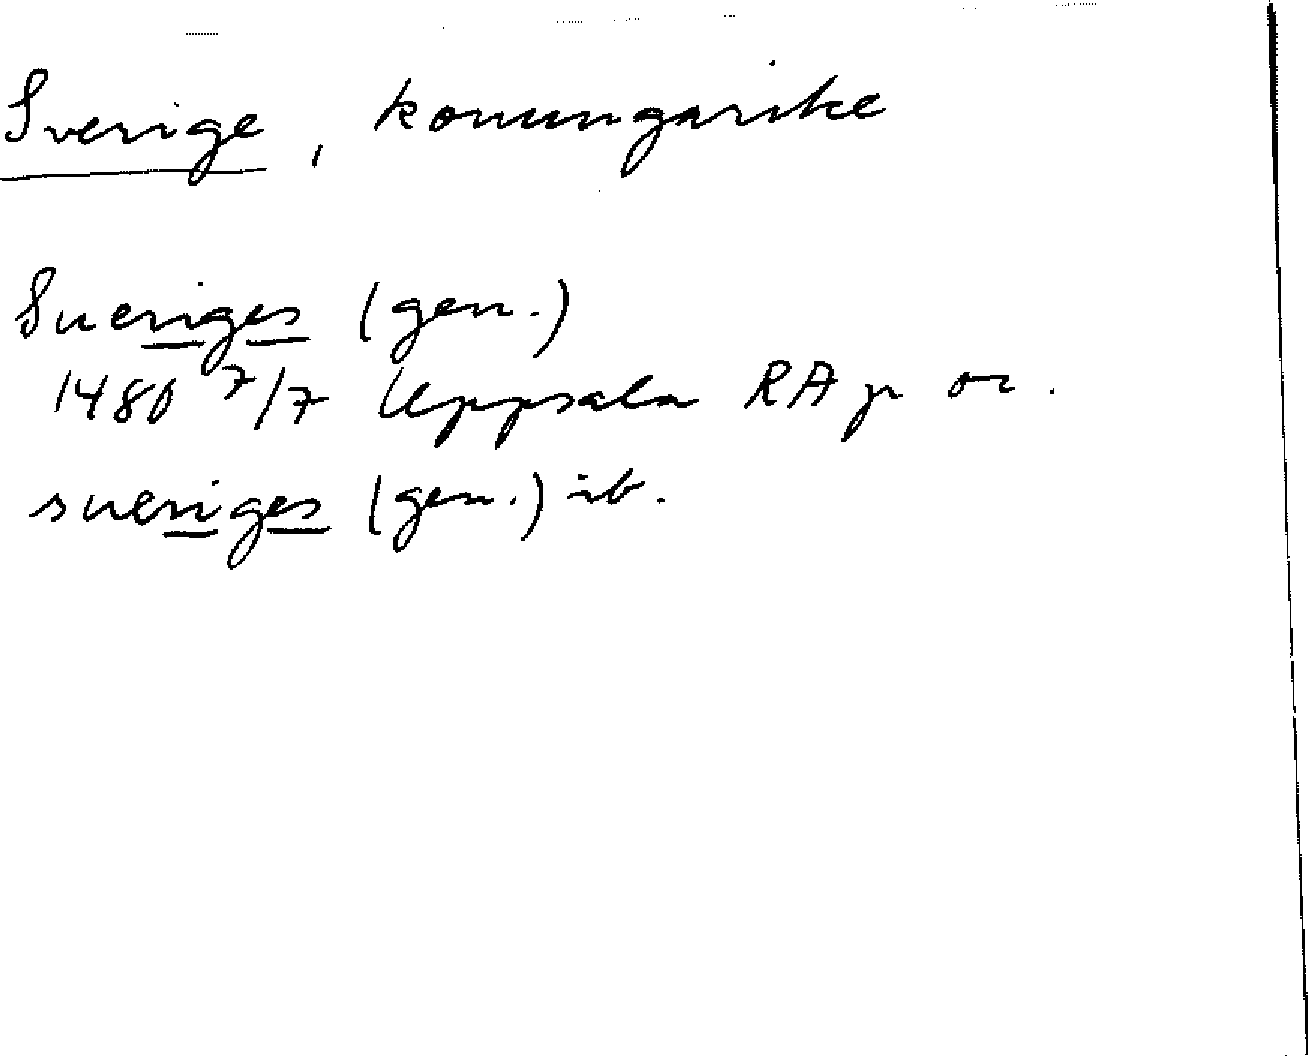 Sverige, konungarike
Sueriges (gen.)
1480 7/7 Uppsala RA p or.
sueriges (gen.) ib.